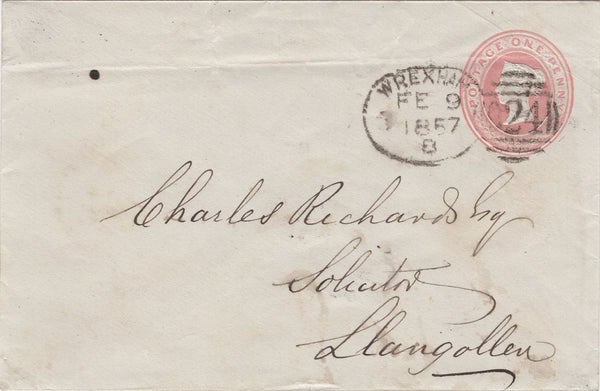 POSTAGE ONE PENNY
WREXHAM
FE 9
1857
8
Charles Richards Esq
Solicitor
Llangollen